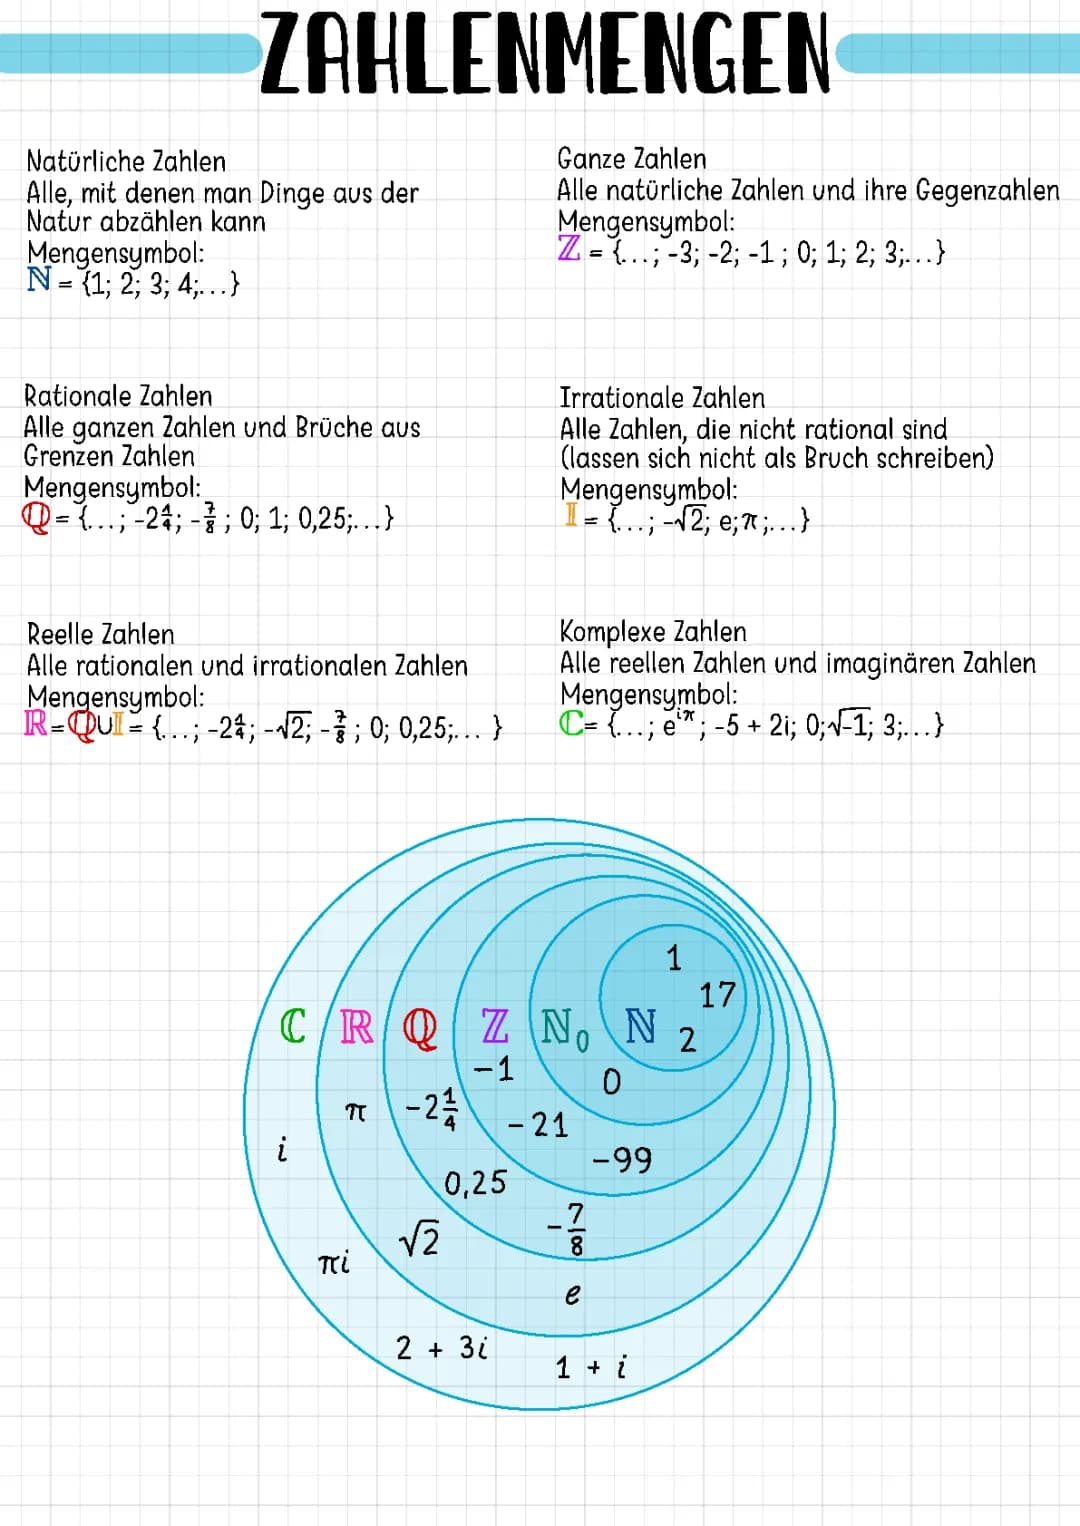 ZAHLENMENGEN
Natürliche Zahlen
Alle, mit denen man Dinge aus der
Natur abzählen kann
Mengensymbol:
ℕ = {1; 2; 3; 4;...}
Ganze Zahlen
Alle natürliche Zahlen und ihre Gegenzahlen
Mengensymbol:
ℤ = {...; -3; -2; -1 ; 0; 1; 2; 3;...}
Rationale Zahlen
Alle ganzen Zahlen und Brüche aus
Grenzen Zahlen
Mengensymbol:
ℚ = {...; -2 ; -7/8 ; 0; 1; 0,25;...}
Irrationale Zahlen
Alle Zahlen, die nicht rational sind
(lassen sich nicht als Bruch schreiben)
Mengensymbol:
𝕀 = {...; -√2; e;π;...}
Reelle Zahlen
Alle rationalen und irrationalen Zahlen
Mengensymbol:
ℝ=ℚ∪𝕀 = {...; -2 ; -√2; -7/8 ; 0; 0,25;... }
Komplexe Zahlen
Alle reellen Zahlen und imaginären Zahlen
Mengensymbol:
ℂ= {...; e^iπ ; -5 + 2i; 0;√-1; 3;...}
1
17
ℂ ℝ ℚ ℤ ℕ₀ ℕ 2
-1 0
π -2 1/4 -21
i -99
0,25
√2 -7/8
πi
e
2 + 3i
1 + i